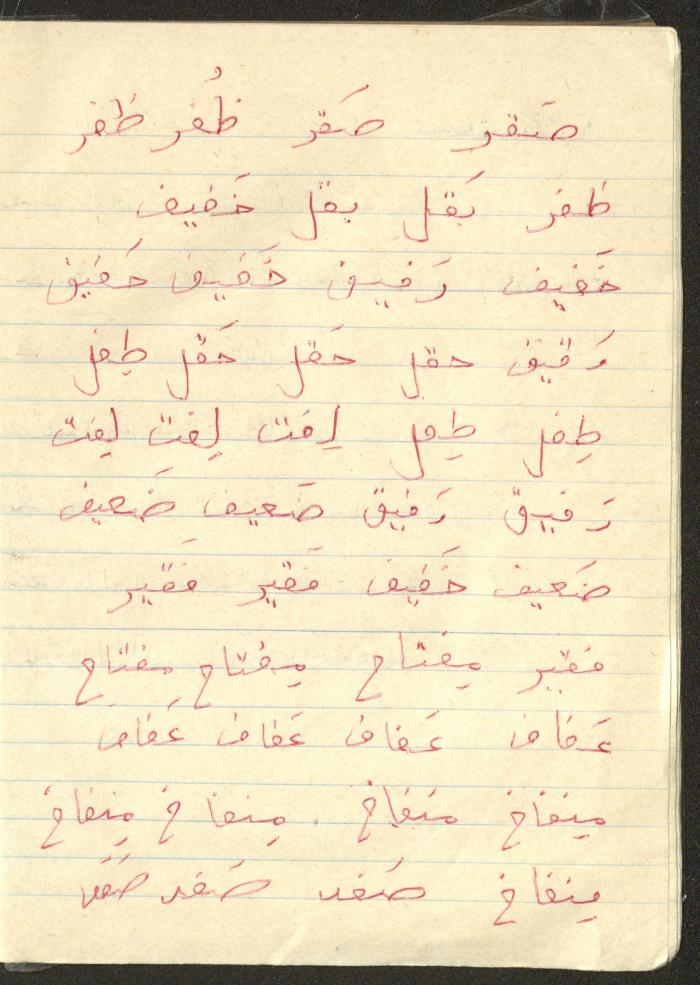 صَقر صَقر ظُفر ظَفر
ظفر بَقل بقل خَفيف
خَفيف رَفيق خَفيف خَفيق
رَقيق حقل حَقل حَقل طِفل
طِفل طِفل لِفت لِفت لِفت
رَفيق رَفيق ضَعيف ضَعيف
ضَعيف خَفيف فَقير فَقير
فقير مِفتاح مِفتاح مِفتاح
عَفاف عَفاف عَفاف عَفاف
مِنفاخ منفاخ مِنفاخ مِنفاخ
مِنفاخ صَفد صَفد صَفَد